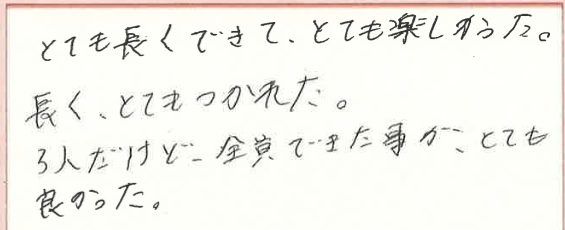 とても長くできて、とても楽しかった。
長く、とてもつかれた。
3人だけど、全員できた事が、とても
良かった。